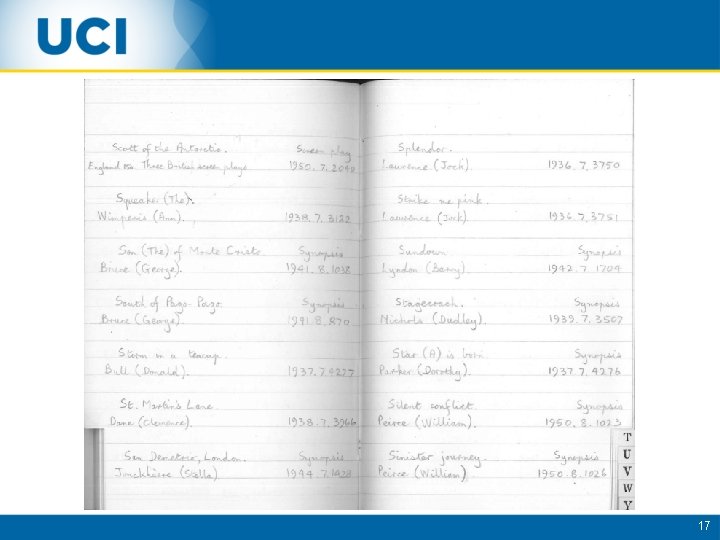 UCI
Scott of the Antarctic. Screen play
England Three British screen plays 1950. 7. 2040
Squeaker (The).
Wimperis (Ann). 1938. 7. 3122
Son (The) of Monte Cristo. Synopsis
Bruce (George). 1941. 8. 1038
South of Pago-Pago. Synopsis
Bruce (George). 1941. 8. 870
Storm in a teacup.
Bull (Donald). 1937. 7. 4277
St. Martin's Lane.
Dane (Clemence). 1938. 7. 3966
San Demetrio, London. Synopsis
(Stella) 1944. 7. 1428
Splendor.
Laurence (Jock) 1936. 7. 3750
Strike me pink.
Laurence (Jock) 1936. 7. 3751
Sundown Synopsis
Lyndon (Barry) 1942. 7. 1704
Stagecoach. Synopsis
Nichols (Dudley) 1939. 7. 3507
Star (A) is born Synopsis
Parker (Dorothy). 1937. 7. 4276
Silent conflict. Synopsis
Peirce (William). 1950. 8. 1023
Sinister journey. Synopsis
Peirce (William) 1950. 8. 1026
T
U
V
W
Y
17